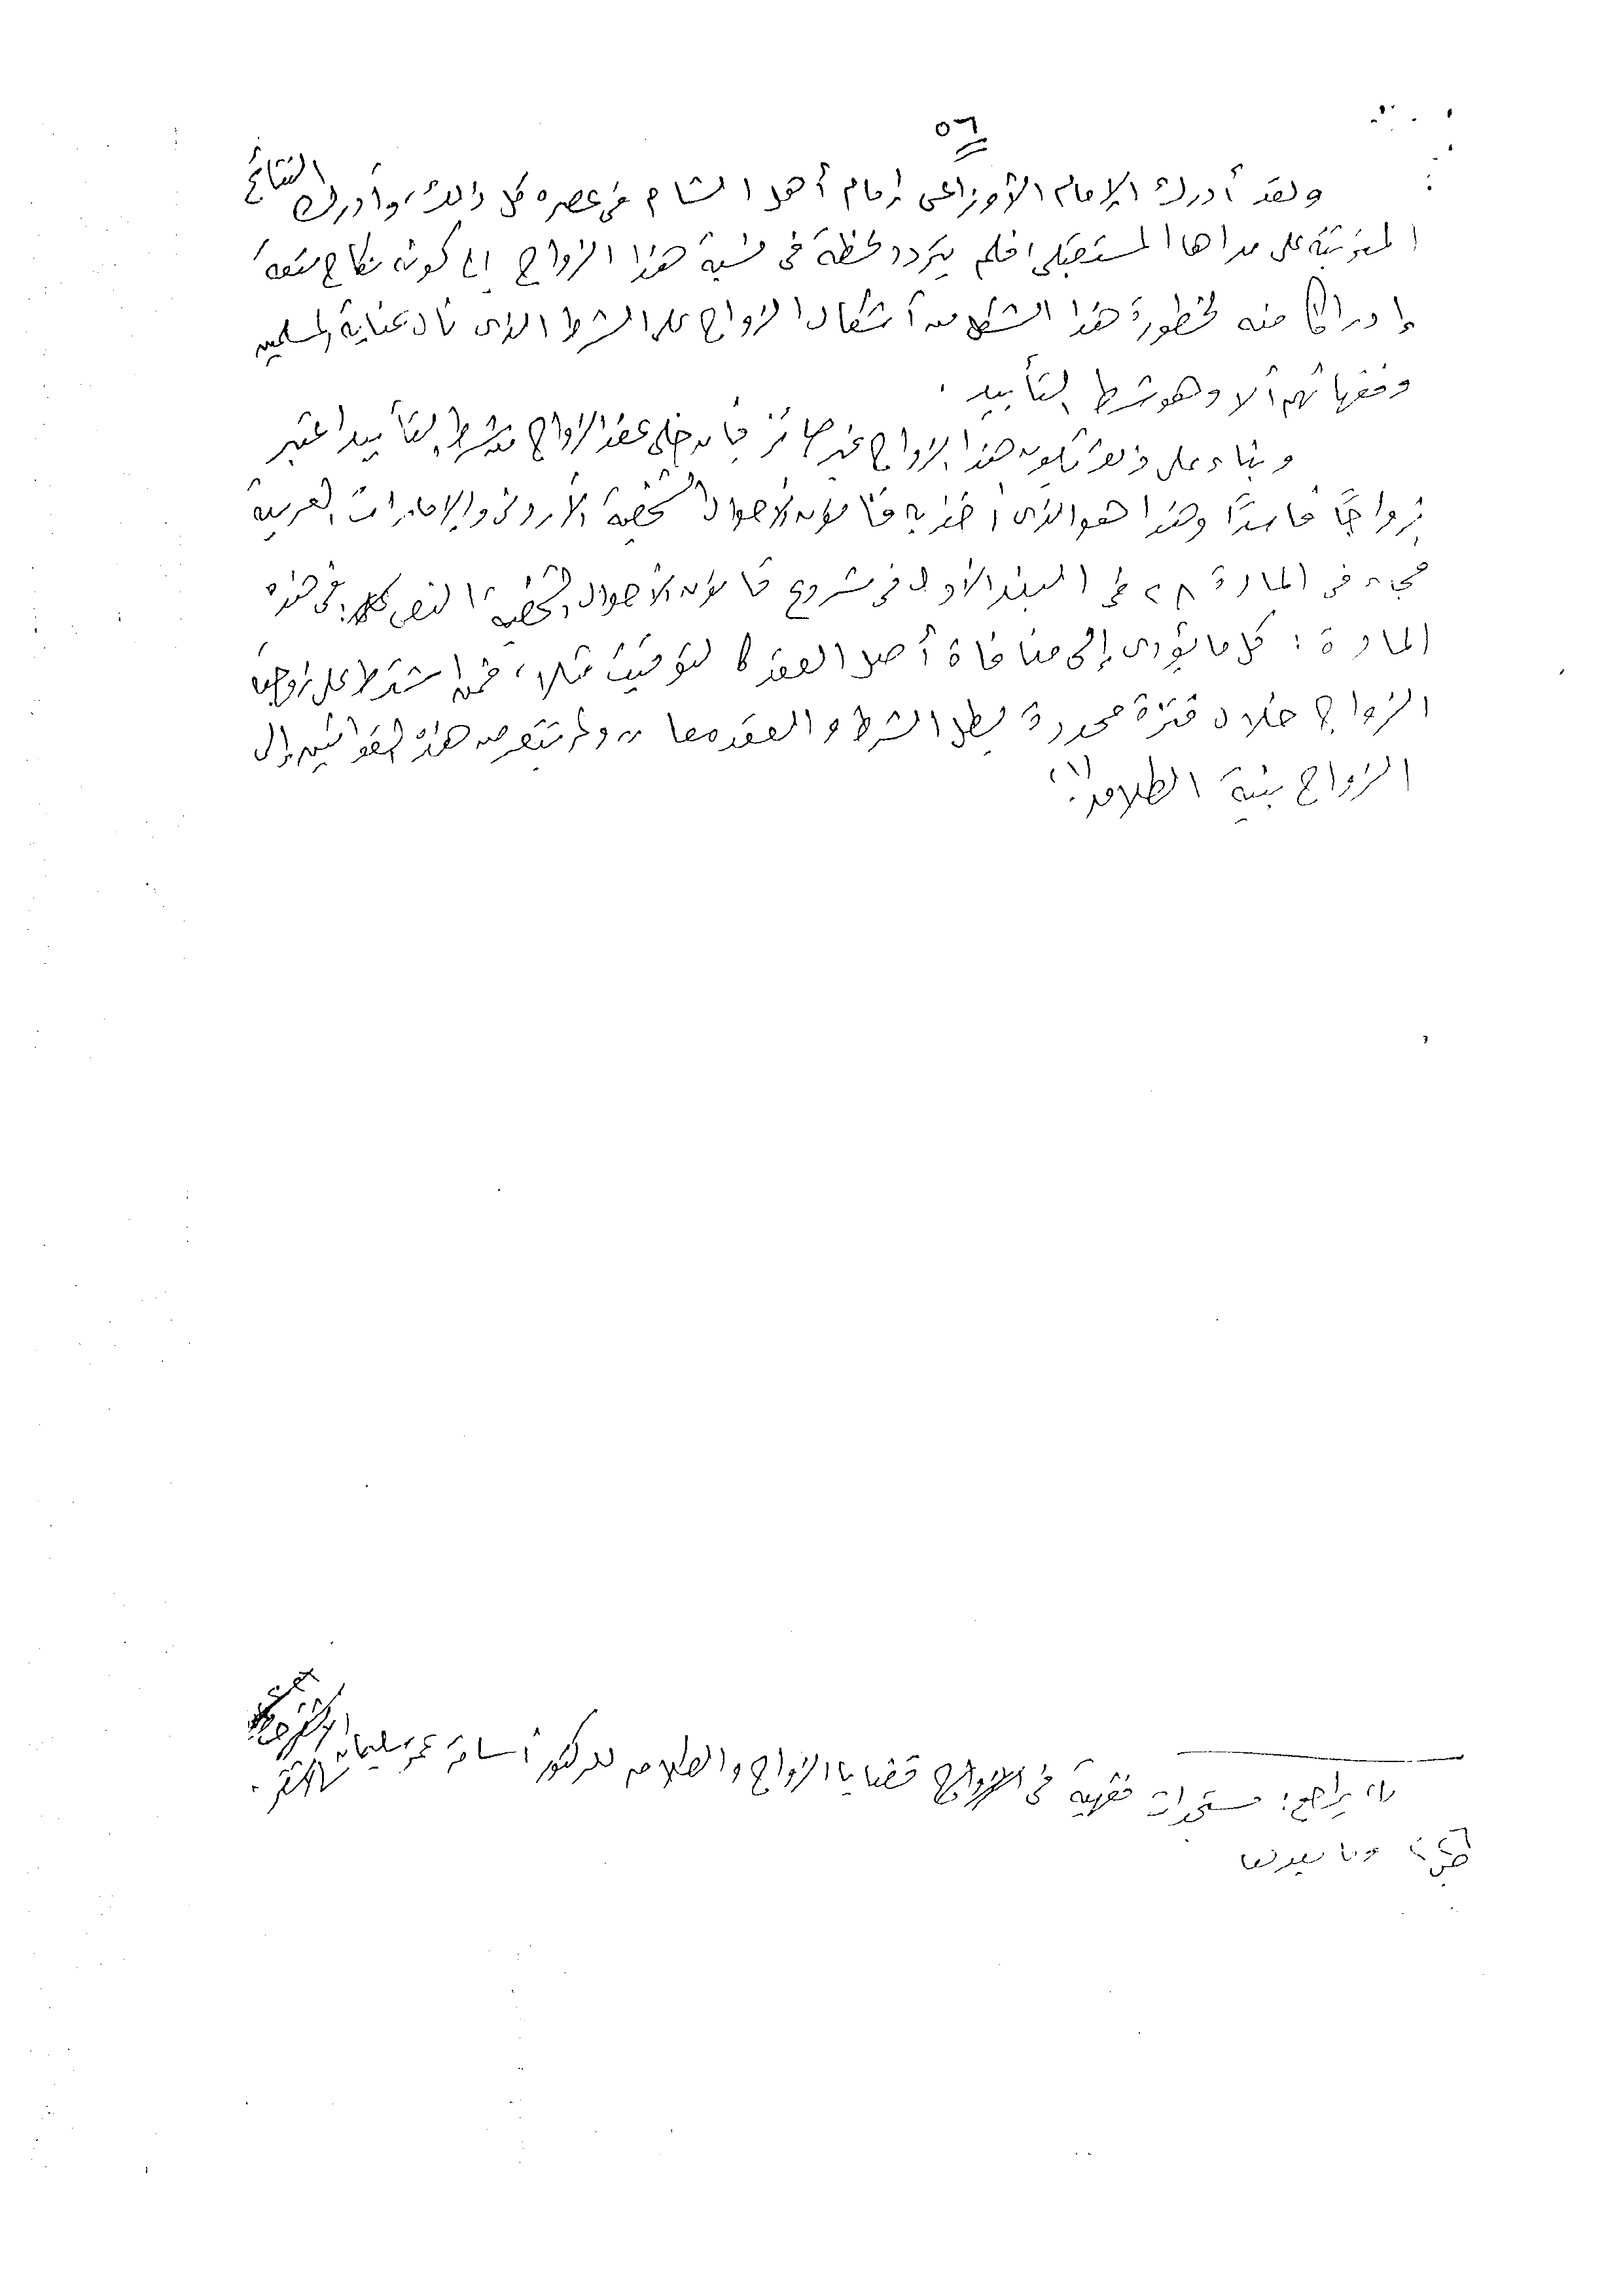 ٥٦
ولقد أدرك الإمام الأوزاعى إمام أهل الشام فى عصره كل ذلك، وأدرك النتائج
المترتبة على مداها المستقبلى، فلم يتردد لحظة فى نسبة هذا الزواج إلى كونه نكاح متعة
إدراكا منه لخطورة هذا الشكل من أشكال الزواج على الشرط الذى نال عناية المسلمين
وفقهائهم ألا وهو شرط التأبيد .
وبناء على ذلك يكون هذا الزواج غير جائز فإن خلى عقد الزواج من شرط التأبيد اعتبر
زواجًا فاسدًا وهذا هو الذى أخذ به قانون الأحوال الشخصية الأردنى والإمارات العربية
فجاء فى المادة ٢٨ فى البند الأول فى مشروع قانون الأحوال الشخصية " النص فى هذه
المادة : كل ما يؤدى إلى منافاة أصل العقد كالتوقيت مثلا، فمن اشترط على زوجته
الزواج خلال فترة محددة بطل الشرط والعقد معا ،، ولم تتعرض هذه القوانين إلى
الزواج بنية الطلاق (١).
(١) يراجع: مستجدات فقهية فى قضايا الزواج والطلاق للدكتور أسامة عمر سليمان الأشقر .
وما بعدها